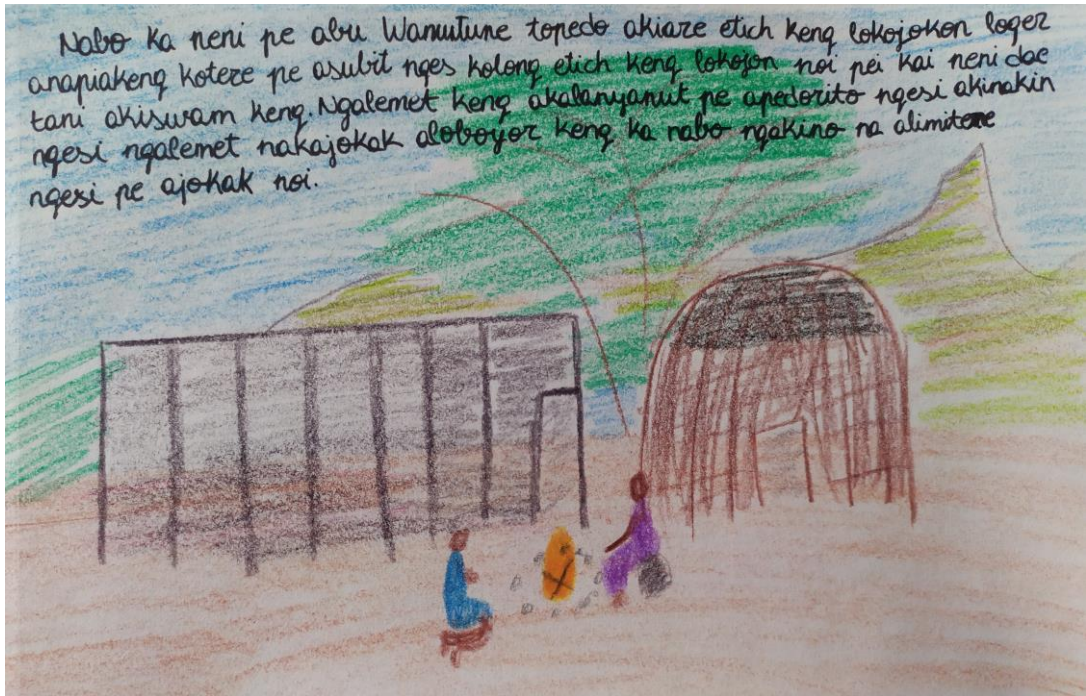 Nabo ka neni pe abu Wamutune topedo akiare etich keng lokojokon loger
anapiakeng kotere pe asubit nges kolong etich keng lokojon noi pei kai neni dae
tani akiswam keng. Ngalemet keng akalanyanut pe apedorito ngesi akinakin
ngesi ngalemet nakajokak aloboyor keng ka nabo ngakino na alimitene
ngesi pe ajokak noi.